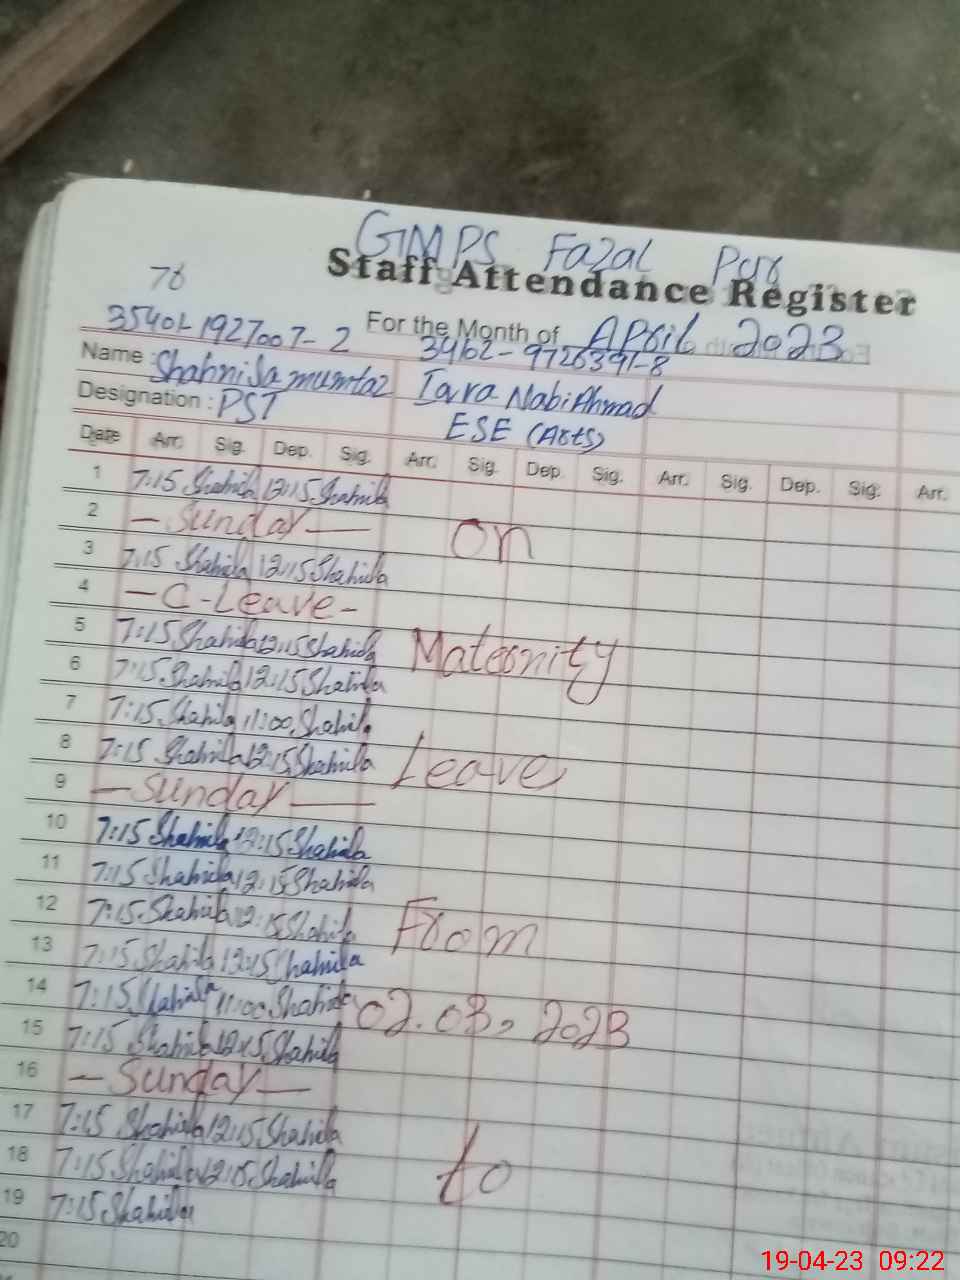 GMPS Fazal Pur
76
Staff Attendance Register
For the Month of April 2023
35401-1927007-2 34102-9726391-8
Name : Shahnila mumtaz Iqra Nabi Ahmad
Designation : PST ESE (Arts)
Date Arr. Sig. Dep. Sig. Arr. Sig. Dep. Sig. Arr. Sig. Dep. Sig. Arr.
1 7:15 Shahnila 12:15 Shahnila
2 — Sunday — On
3 7:15 Shahnila 12:15 Shahnila
4 — C-Leave -
5 7:15 Shahnila 12:15 Shahnila Maternity
6 7:15 Shahnila 12:15 Shahnila
7 7:15 Shahnila 11:00 Shahnila
8 7:15 Shahnila 12:15 Shahnila Leave
9 — Sunday —
10 7:15 Shahnila 12:15 Shahnila
11 7:15 Shahnila 12:15 Shahnila
12 7:15 Shahnila 12:15 Shahnila From
13 7:15 Shahnila 12:15 Shahnila
14 7:15 Shahnila 11:00 Shahnila 02.03.2023
15 7:15 Shahnila 12:15 Shahnila
16 — Sunday —
17 7:15 Shahnila 12:15 Shahnila
18 7:15 Shahnila 12:15 Shahnila to
19 7:15 Shahnila
20
19-04-23 09:22